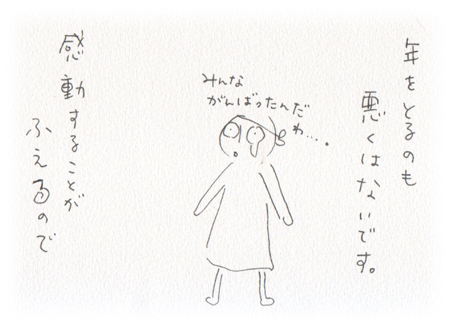 年をとるのも
悪くはないです。
みんな
がんばったんだ
わ….
感動することが
ふえるので